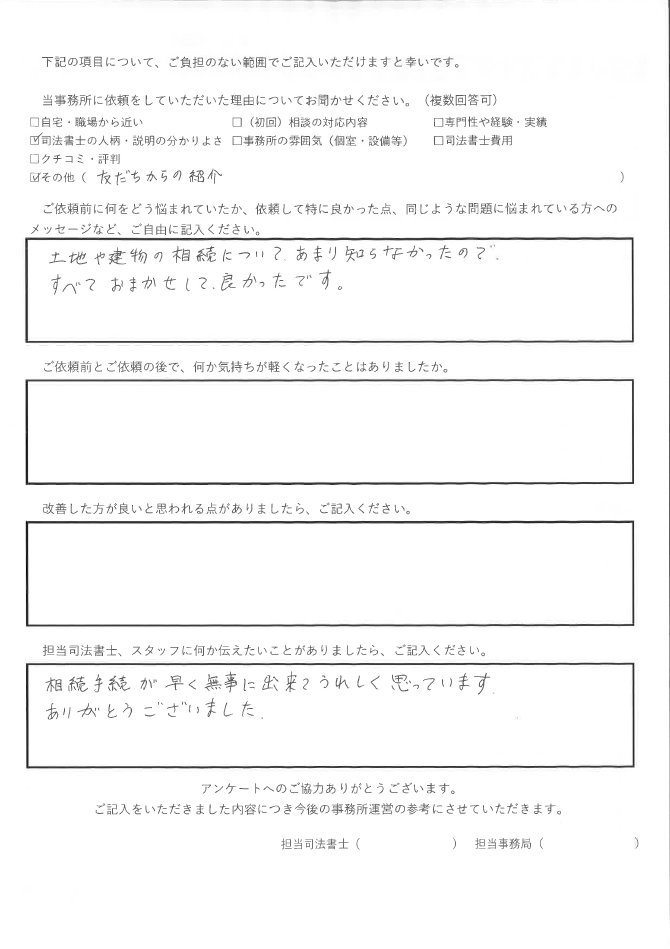 下記の項目について、ご負担のない範囲でご記入いただけますと幸いです。
当事務所に依頼をしていただいた理由についてお聞かせください。（複数回答可）
□自宅・職場から近い □（初回）相談の対応内容 □専門性や経験・実績
☑司法書士の人柄・説明の分かりよさ □事務所の雰囲気（個室・設備等） □司法書士費用
□クチコミ・評判
☑その他（ 友だちからの紹介 ）
ご依頼前に何をどう悩まれていたか、依頼して特に良かった点、同じような問題に悩まれている方への
メッセージなど、ご自由に記入ください。
土地や建物の相続について、あまり知らなかったので、
すべて おまかせして、良かったです。
ご依頼前とご依頼の後で、何か気持ちが軽くなったことはありましたか。
改善した方が良いと思われる点がありましたら、ご記入ください。
担当司法書士、スタッフに何か伝えたいことがありましたら、ご記入ください。
相続手続が早く無事に出来てうれしく思っています。
ありがとうございました。
アンケートへのご協力ありがとうございます。
ご記入をいただきました内容につき今後の事務所運営の参考にさせていただきます。
担当司法書士（ ） 担当事務局（ ）